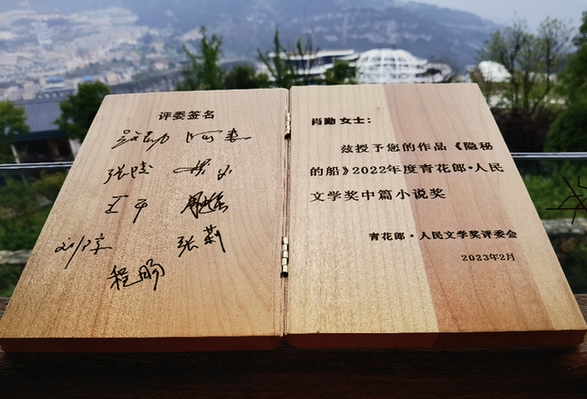 评委签名
张陵
王干
张莉
程旸
肖勤女士：
兹授予您的作品《隐秘
的船》2022年度青花郎·人民
文学奖中篇小说奖
青花郎·人民文学奖评委会
2023年2月